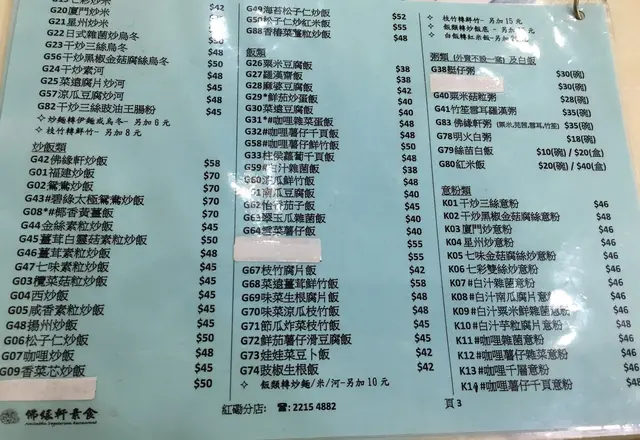 G20廈門炒米 $42
G21星州炒米 $48
G22日式雜菌炒烏冬
G23干炒三絲烏冬 $50
G56干炒黑椒金菇腐絲烏冬 $50
G24干炒素河 $48
G25菜遠腐片炒河 $45
G57涼瓜豆腐炒河 $45
G82干炒三絲豉油王腸粉 $45
炒麵轉伊麵或烏冬-另加6元
枝竹轉鮮竹-另加8元
炒飯類
G42佛緣軒炒飯 $58
G01福建炒飯 $70
G02鴛鴦炒飯 $70
G43#碧綠太極鴛鴦炒飯 $70
G08*#椰香黃薑飯 $70
G44金絲素粒炒飯 $45
G45薑茸白靈菇素粒炒飯 $50
G46薑茸素粒炒飯 $48
G47七味素粒炒飯 $45
G03欖菜菇粒炒飯 $45
G04西炒飯 $45
G05咸香素粒炒飯 $45
G48揚州炒飯 $45
G06松子仁炒飯 $50
G07咖哩炒飯 $48
G09香菜芯炒飯 $45
$50
佛緣軒素食
G49海苔松子仁炒飯 $52
G50松子仁炒紅米飯 $55
G88香椿菜蓉粒炒飯 $48
飯類
G26粟米豆腐飯 $38
G27羅漢齋飯 $38
G28麻婆豆腐飯 $38
G29*鮮茄炒蛋飯 $40
G30菜遠豆腐飯 $40
G31*#咖喱薯仔蛋飯 $40
G32#咖喱薯仔千頁飯 $48
G58#咖喱薯仔鮮竹飯 $50
G33柱侯蘿蔔千頁飯 $48
G59#白汁雜菌飯 $38
G60涼瓜鮮竹飯 $48
G61南瓜豆腐飯 $40
G62怡香茄子飯 $45
G63翠玉瓜雜菌飯 $40
G64雲菜薯仔飯 $40
$55
G67枝竹腐片飯 $42
G68菜遠薑茸鮮竹飯 $58
G69味菜生根腐片飯 $48
G70味菜涼瓜枝竹飯 $48
G71節瓜炸菜枝竹飯 $45
G72鮮茄薯仔滑豆腐飯 $45
G73娃娃菜豆卜飯 $42
G74豉椒生根飯 $42
飯類轉炒麵/米/河-另加10元
紅磡分店: ☎: 2215 4882
枝竹轉鮮竹-另加15元
粥類 (外賣不設一窩) 及白飯
G38艇仔粥 $30(碗)
$30(碗)
G40粟米菇粒粥 $28(碗)
G41竹笙雲耳羅漢粥 $35(碗)
G83佛緣軒粥 $35(碗)
G78明火白粥 $18(碗)
G79絲苗白飯 $10(碗) / $20(盒)
G80紅米飯 $20(碗) / $40(盒)
意粉類
K01干炒三絲意粉 $46
K02干炒黑椒金菇腐絲意粉 $46
K03廈門炒意粉 $46
K04星州炒意粉 $46
K05七味金菇腐絲炒意粉 $46
K06七彩雙絲炒意粉 $46
K07#白汁雜菌意粉 $46
K08#白汁南瓜腐片意粉 $46
K09#白汁雜菜意粉 $46
K10#白汁芋粒腐片意粉 $48
K11#咖哩雜菌意粉 $46
K12#咖哩薯仔雜菜意粉 $46
K13#咖哩千層意粉 $46
K14#咖哩薯仔千頁意粉 $46
頁3